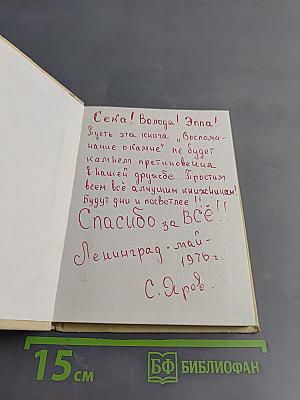 Сека! Володя! Элла!
Пусть эта книга „Воспоми-
нание о камне" не будет
камнем претиновения
в нашей дружбе. Простим
всем всё алчущим книжникам!
Будут дни и посветлее!!
Спасибо за всё!!
Ленинград - май -
1976 г.
С. Яров.
15 см
БФ БИБЛИОФАН